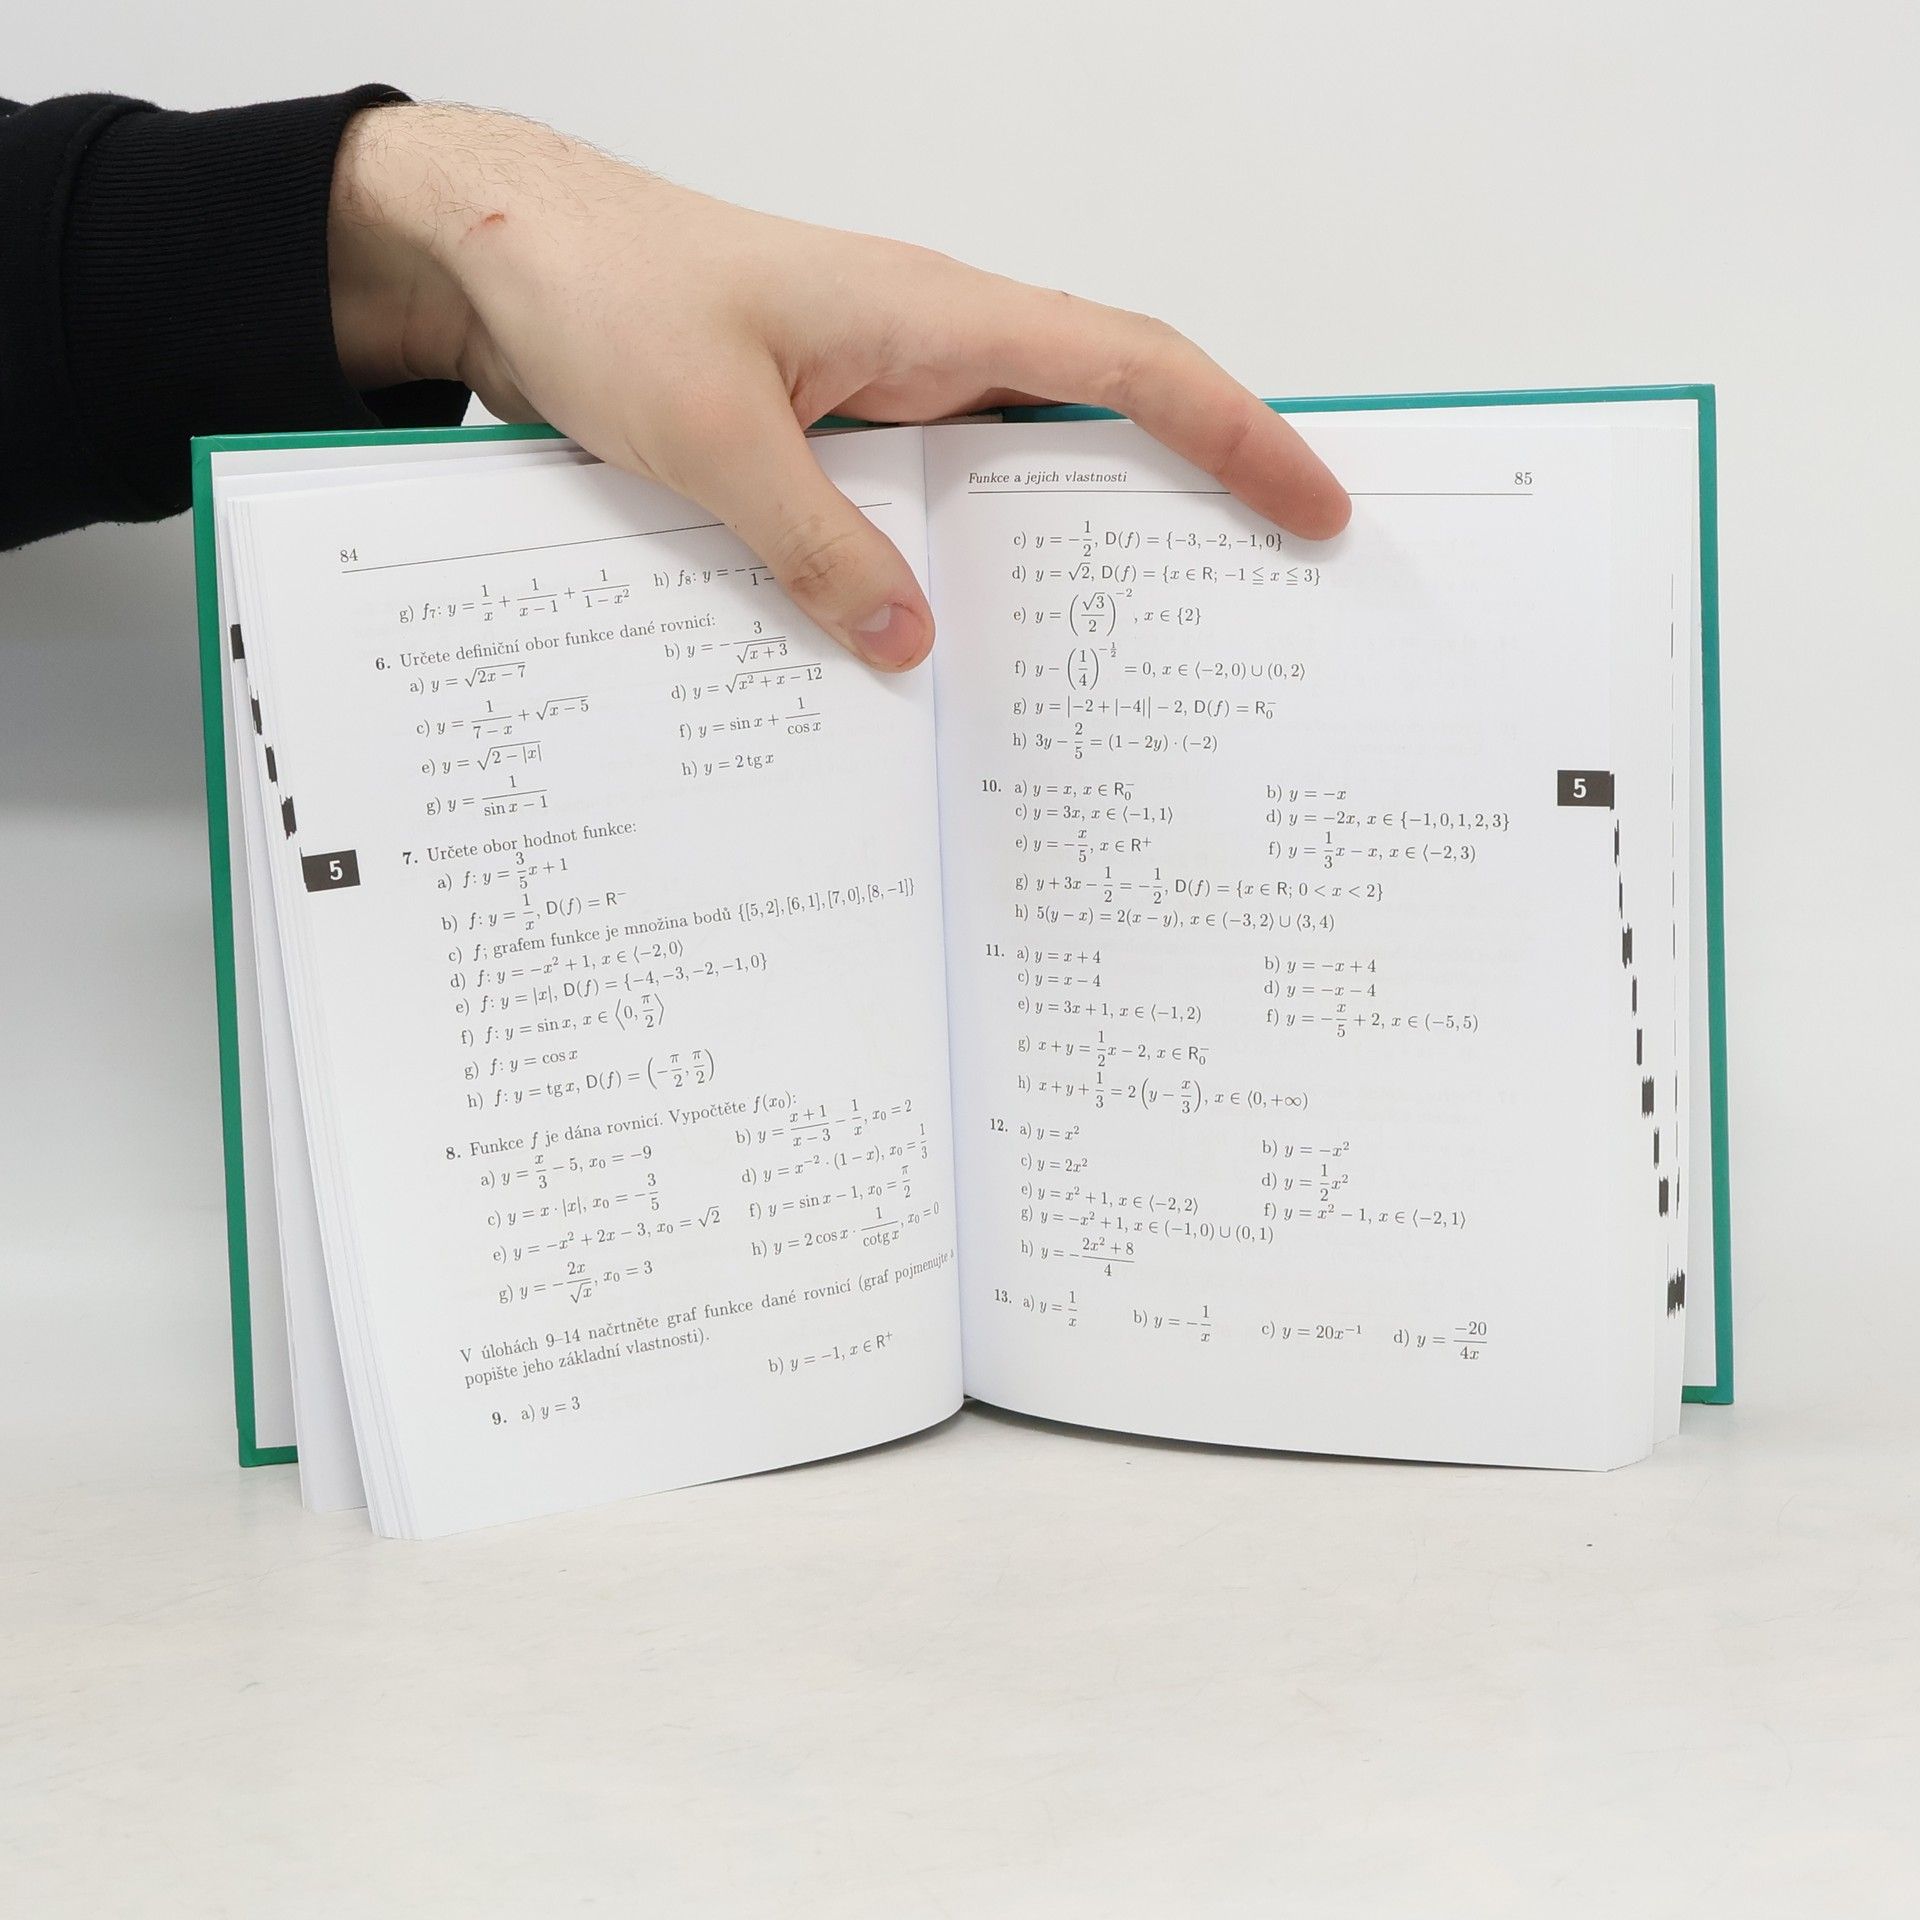 84
g) f₇: y = 1/x + 1/(x − 1) + 1/(1 − x²) h) f₈: y = −
6. Určete definiční obor funkce dané rovnicí:
a) y = √(2x − 7) b) y = −3/√(x + 3)
c) y = 1/(7 − x) + √(x − 5) d) y = √(x² + x − 12)
e) y = √(2 − |x|) f) y = sin x + 1/cos x
g) y = 1/(sin x − 1) h) y = 2 tg x
5
7. Určete obor hodnot funkce:
a) f: y = 3/5 x + 1
b) f: y = 1/x, D(f) = R⁻
c) f; grafem funkce je množina bodů {[5, 2], [6, 1], [7, 0], [8, −1]}
d) f: y = −x² + 1, x ∈ ⟨−2, 0⟩
e) f: y = |x|, D(f) = {−4, −3, −2, −1, 0}
f) f: y = sin x, x ∈ ⟨0, π/2⟩
g) f: y = cos x
h) f: y = tg x, D(f) = (−π/2, π/2)
8. Funkce f je dána rovnicí. Vypočtěte f(x₀):
a) y = x/3 − 5, x₀ = −9 b) y = (x + 1)/(x − 3) − 1/x, x₀ = 2
c) y = x · |x|, x₀ = −3/5 d) y = x⁻² · (1 − x), x₀ = 1/3
e) y = −x² + 2x − 3, x₀ = √2 f) y = sin x − 1, x₀ = π/2
g) y = −2x/√x, x₀ = 3 h) y = 2 cos x · 1/cotg x, x₀ = 0
V úlohách 9–14 načrtněte graf funkce dané rovnicí (graf pojmenujte a
popište jeho základní vlastnosti).
9. a) y = 3 b) y = −1, x ∈ R⁺
Funkce a jejich vlastnosti 85
c) y = −1/2, D(f) = {−3, −2, −1, 0}
d) y = √2, D(f) = {x ∈ R; −1 ≦ x ≦ 3}
e) y = (√3/2)⁻², x ∈ {2}
f) y − (1/4)^(−1/2) = 0, x ∈ ⟨−2, 0) ∪ (0, 2⟩
g) y = |−2 + |−4|| − 2, D(f) = R₀⁻
h) 3y − 2/5 = (1 − 2y) · (−2)
5
10. a) y = x, x ∈ R₀⁻ b) y = −x
c) y = 3x, x ∈ ⟨−1, 1⟩ d) y = −2x, x ∈ {−1, 0, 1, 2, 3}
e) y = −x/5, x ∈ R⁺ f) y = 1/3 x − x, x ∈ ⟨−2, 3)
g) y + 3x − 1/2 = −1/2, D(f) = {x ∈ R; 0 < x < 2}
h) 5(y − x) = 2(x − y), x ∈ (−3, 2⟩ ∪ (3, 4)
11. a) y = x + 4 b) y = −x + 4
c) y = x − 4 d) y = −x − 4
e) y = 3x + 1, x ∈ ⟨−1, 2) f) y = −x/5 + 2, x ∈ (−5, 5)
g) x + y = 1/2 x − 2, x ∈ R₀⁻
h) x + y + 1/3 = 2 (y − x/3), x ∈ ⟨0, +∞)
12. a) y = x² b) y = −x²
c) y = 2x² d) y = 1/2 x²
e) y = x² + 1, x ∈ ⟨−2, 2⟩ f) y = x² − 1, x ∈ ⟨−2, 1⟩
g) y = −x² + 1, x ∈ (−1, 0) ∪ (0, 1)
h) y = −(2x² + 8)/4
13. a) y = 1/x b) y = −1/x c) y = 20x⁻¹ d) y = −20/4x